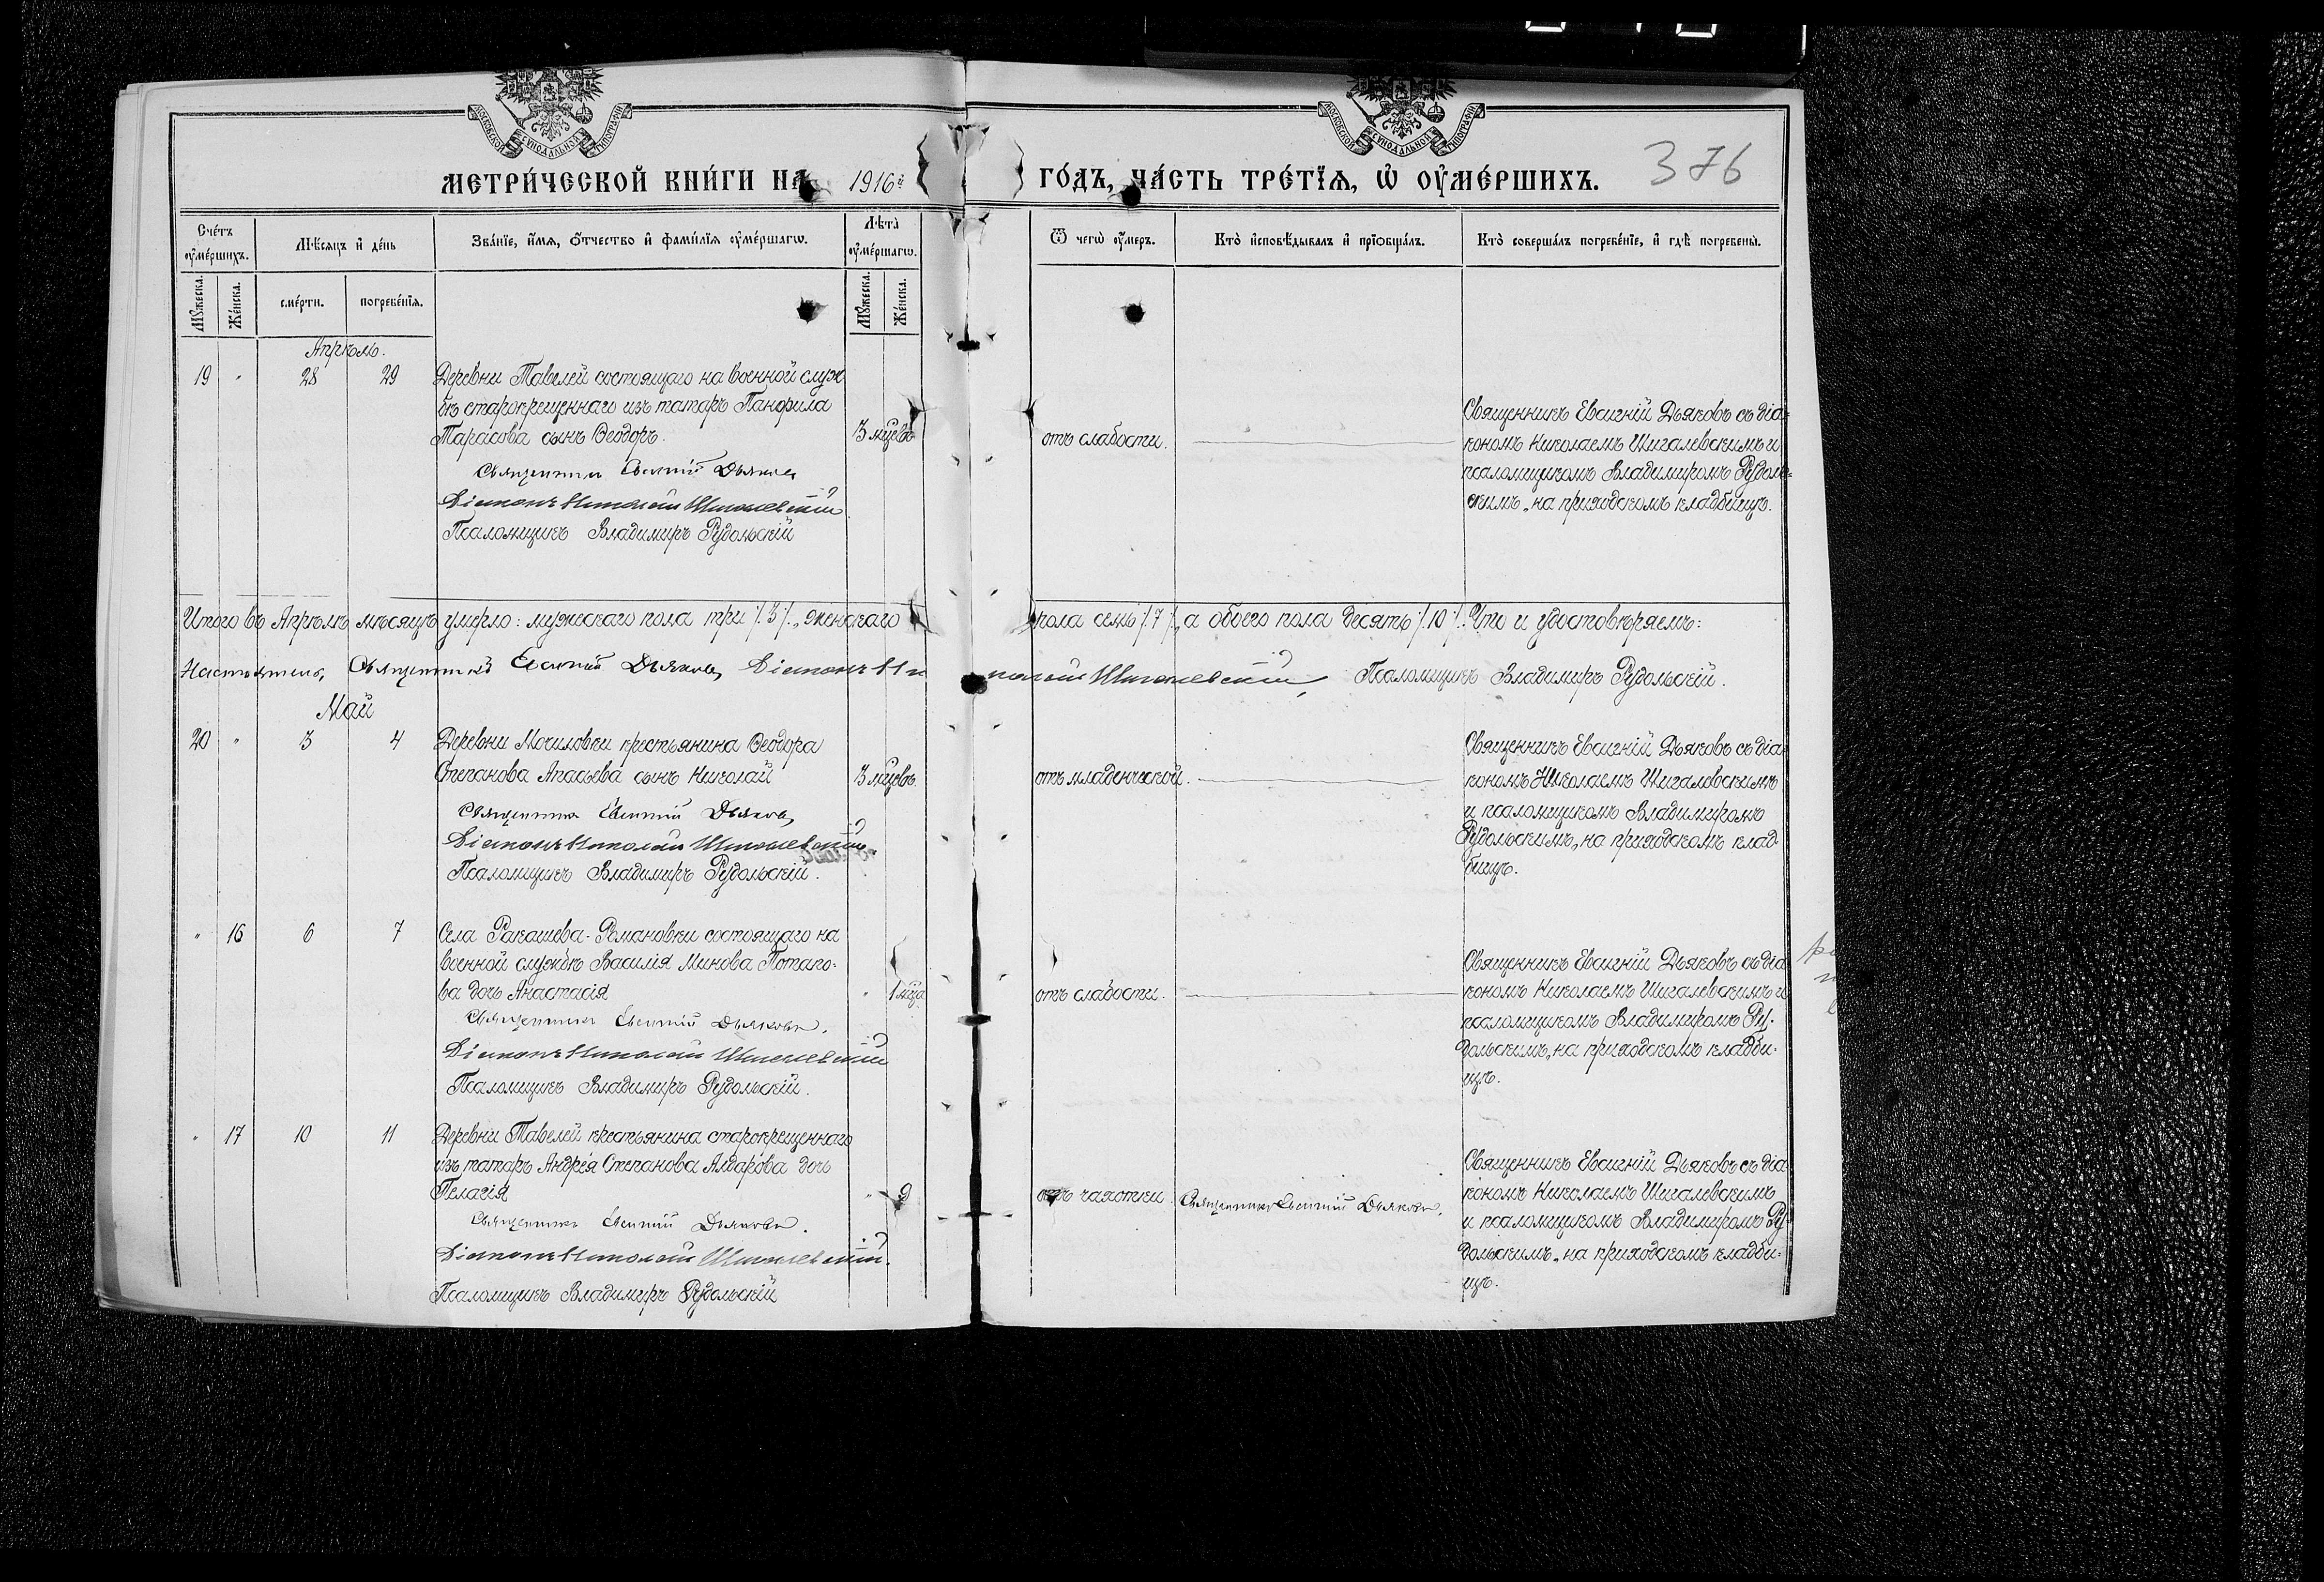 МОСКОВСКОЙ СѴНОДАЛЬНОЙ ТИПОГРАФІИ
МОСКОВСКОЙ СѴНОДАЛЬНОЙ ТИПОГРАФІИ
МЕТРИ́ЧЕСКОЙ КНИ́ГИ НА 1916й
ГО́ДЪ, ЧА́СТЬ ТРЕ́ТЇѦ, Ѡ҆ ОУ҆МЕ́РШИХЪ.
376
Сче́тъ оу҆ме́ршихъ.
Мѣ́сяцъ и҆ де́нь
Зва́нїе, и҆́мѧ, ѻ҆́тчество и҆ фами́лїѧ оу҆ме́ршагѡ.
Лѣ́та оу҆ме́ршагѡ.
Ѿ чегѡ̀ оу҆́меръ.
Кто̀ и҆сповѣ́дывалъ и҆ прїѡбща́лъ.
Кто̀ соверша́лъ погребе́нїе, и҆ гдѣ̀ погребены̀.
Мꙋ́жеска.
Же́нска.
сме́рти.
погребе́нїѧ.
Мꙋ́жеска.
Же́нска.
Апрѣль.
19 " 28 29
Деревни Тавелей состоящаго на военной служ
бѣ старокрещеннаго изъ татаръ Панфила
Тарасова сынъ Ѳеодоръ.
3 мцевъ
Священникъ Евѳгній Дьяковъ
Діаконъ Николай Шигалевскій
Псаломщикъ Владимиръ Рудольскій
отъ слабости.
Священникъ Евгеній Дьяковъ съ діа=
кономъ Николаемъ Шигалевскимъ и
псаломщикомъ Владимиромъ Рудоль=
скимъ, на приходскомъ кладбищѣ.
Итого въ Апрѣлѣ мѣсяцѣ умерло: мужескаго пола три /.3/., женскаго
пола семь /.7/., а обоего пола десять /.10/. Что и удостовѣряемъ:
Настоятель, Священникъ Евгеній Дьяковъ, Діаконъ Николай Шигалевскій, Псаломщикъ Владимиръ Рудольскій.
Май
20 " 3 4
Деревни Мочиловки крестьянина Ѳеодора
Степанова сынъ Николай
3 мцевъ.
Священникъ Евгеній Дьяковъ,
Діаконъ Николай Шигалевскій
Псаломщикъ Владимиръ Рудольскій.
отъ младенческой.
Священникъ Евгеній Дьяковъ съ діа
кономъ Николаемъ Шигалевскимъ
и псаломщикомъ Владимиромъ
Рудольскимъ, на приходскомъ клад
бищѣ.
" 16 6 7
Села Ракашева-Романовки состоящаго на
военной службѣ Василія Минова Потапо-
ва дочь Анастасія
" 1 мца
Священникъ Евгеній Дьяковъ.
Діаконъ Николай Шигалевскій
Псаломщикъ Владимиръ Рудольскій.
отъ слабости.
Священникъ Евгеній Дьяковъ съ діа
кономъ Николаемъ Шигалевскимъ и
псаломщикомъ Владимиромъ Ру-
дольскимъ, на приходскомъ кладби-
щѣ.
" 17 10 11
Деревни Тавелей крестьянина старокрещеннаго
изъ татаръ Андрея Степанова Алдарова дочь
Пелагія
" 9
Священникъ Евгеній Дьяковъ.
Діаконъ Николай Шигалевскій.
Псаломщикъ Владимиръ Рудольскій
отъ чахотки.
Священникъ Евгеній Дьяковъ.
Священникъ Евгеній Дьяковъ съ діа
кономъ Николаемъ Шигалевскимъ
и псаломщикомъ Владимиромъ Ру
дольскимъ, на приходскомъ кладби-
щѣ.